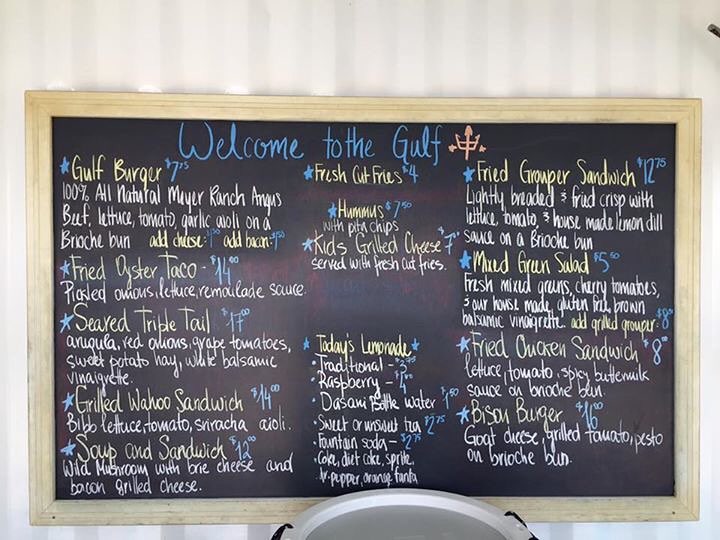 Welcome to the Gulf
Gulf Burger $7.75
100% All Natural Meyer Ranch Angus
Beef, lettuce, tomato, garlic aioli on a
Brioche bun add cheese: $1.50 add bacon: $1.50
Fried Oyster Taco - $14.00
Pickled onions, lettuce, remoulade sauce.
Seared Triple Tail - $17.00
arugula, red onions, grape tomatoes,
sweet potato hay, white balsamic
vinaigrette.
Grilled Wahoo Sandwich $14.00
Bibb lettuce, tomato, sriracha aioli.
Soup and Sandwich $12.00
Wild Mushroom with brie cheese and
bacon grilled cheese.
Fresh Cut Fries $4
Hummus $7.50
with pita chips
Kids Grilled Cheese $7
served with fresh cut fries.
Today's Lemonade
Traditional -
Raspberry -
Dasani Bottle water
Sweet or unsweet tea $2.75
Fountain soda - $2.75
Coke, diet coke, sprite,
dr. pepper, orange fanta
Fried Grouper Sandwich $12.75
Lightly breaded & fried crisp with
lettuce, tomato & house made lemon dill
sauce on a Brioche bun
Mixed Green Salad $5.50
Fresh mixed greens, cherry tomatoes,
& our house made, gluten free, brown
balsamic vinaigrette add grilled grouper:
Fried Chicken Sandwich $8.00
lettuce, tomato, spicy buttermilk
sauce on brioche bun.
Bison Burger $16.00
Goat cheese, grilled tomato, pesto
on brioche bun.